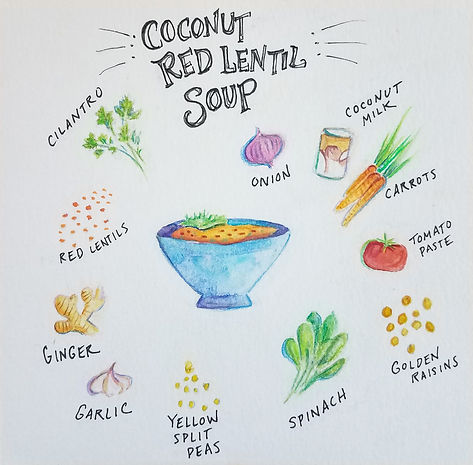 COCONUT
RED LENTIL
SOUP
CILANTRO
ONION
COCONUT
MILK
CARROTS
RED LENTILS
TOMATO
PASTE
GINGER
GOLDEN
RAISINS
GARLIC
YELLOW
SPLIT
PEAS
SPINACH